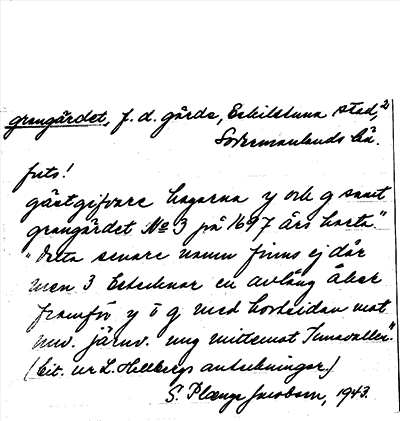 grangärdet, f. d. gärde, Eskilstuna stad, 2)
Södermanlands län.
forts!
gästgifvare hagarna y och g samt
grangärdet No 3 på 1697 års karta."
"Detta senare namn finns ej där
men 3 betecknar en avlång åker
framför y o g med kortsidan mot
nuv. järnv. ung mittemot Tunavallen."
(cit. ur L. Hellbergs anteckningar.)
S. Plænge Jacobson, 1943.